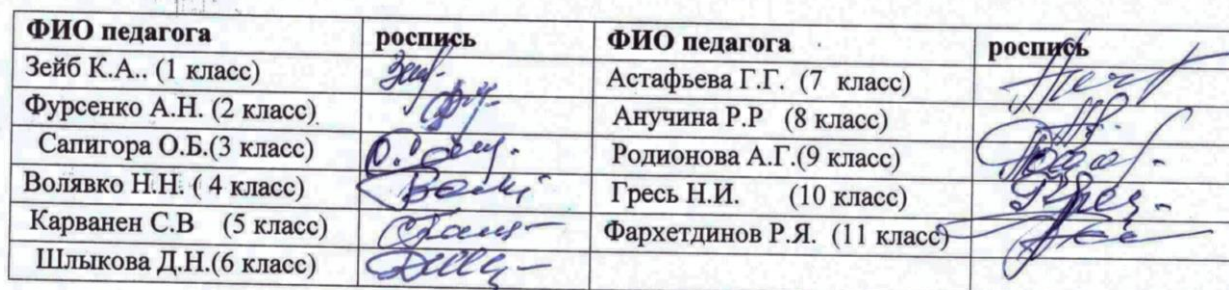 ФИО педагога роспись ФИО педагога роспись
Зейб К.А.. (1 класс) Астафьева Г.Г. (7 класс)
Фурсенко А.Н. (2 класс). Анучина Р.Р (8 класс)
Сапигора О.Б.(3 класс) Родионова А.Г.(9 класс)
Волявко Н.Н. ( 4 класс) Гресь Н.И. (10 класс)
Карванен С.В (5 класс) Фархетдинов Р.Я. (11 класс)
Шлыкова Д.Н.(6 класс)